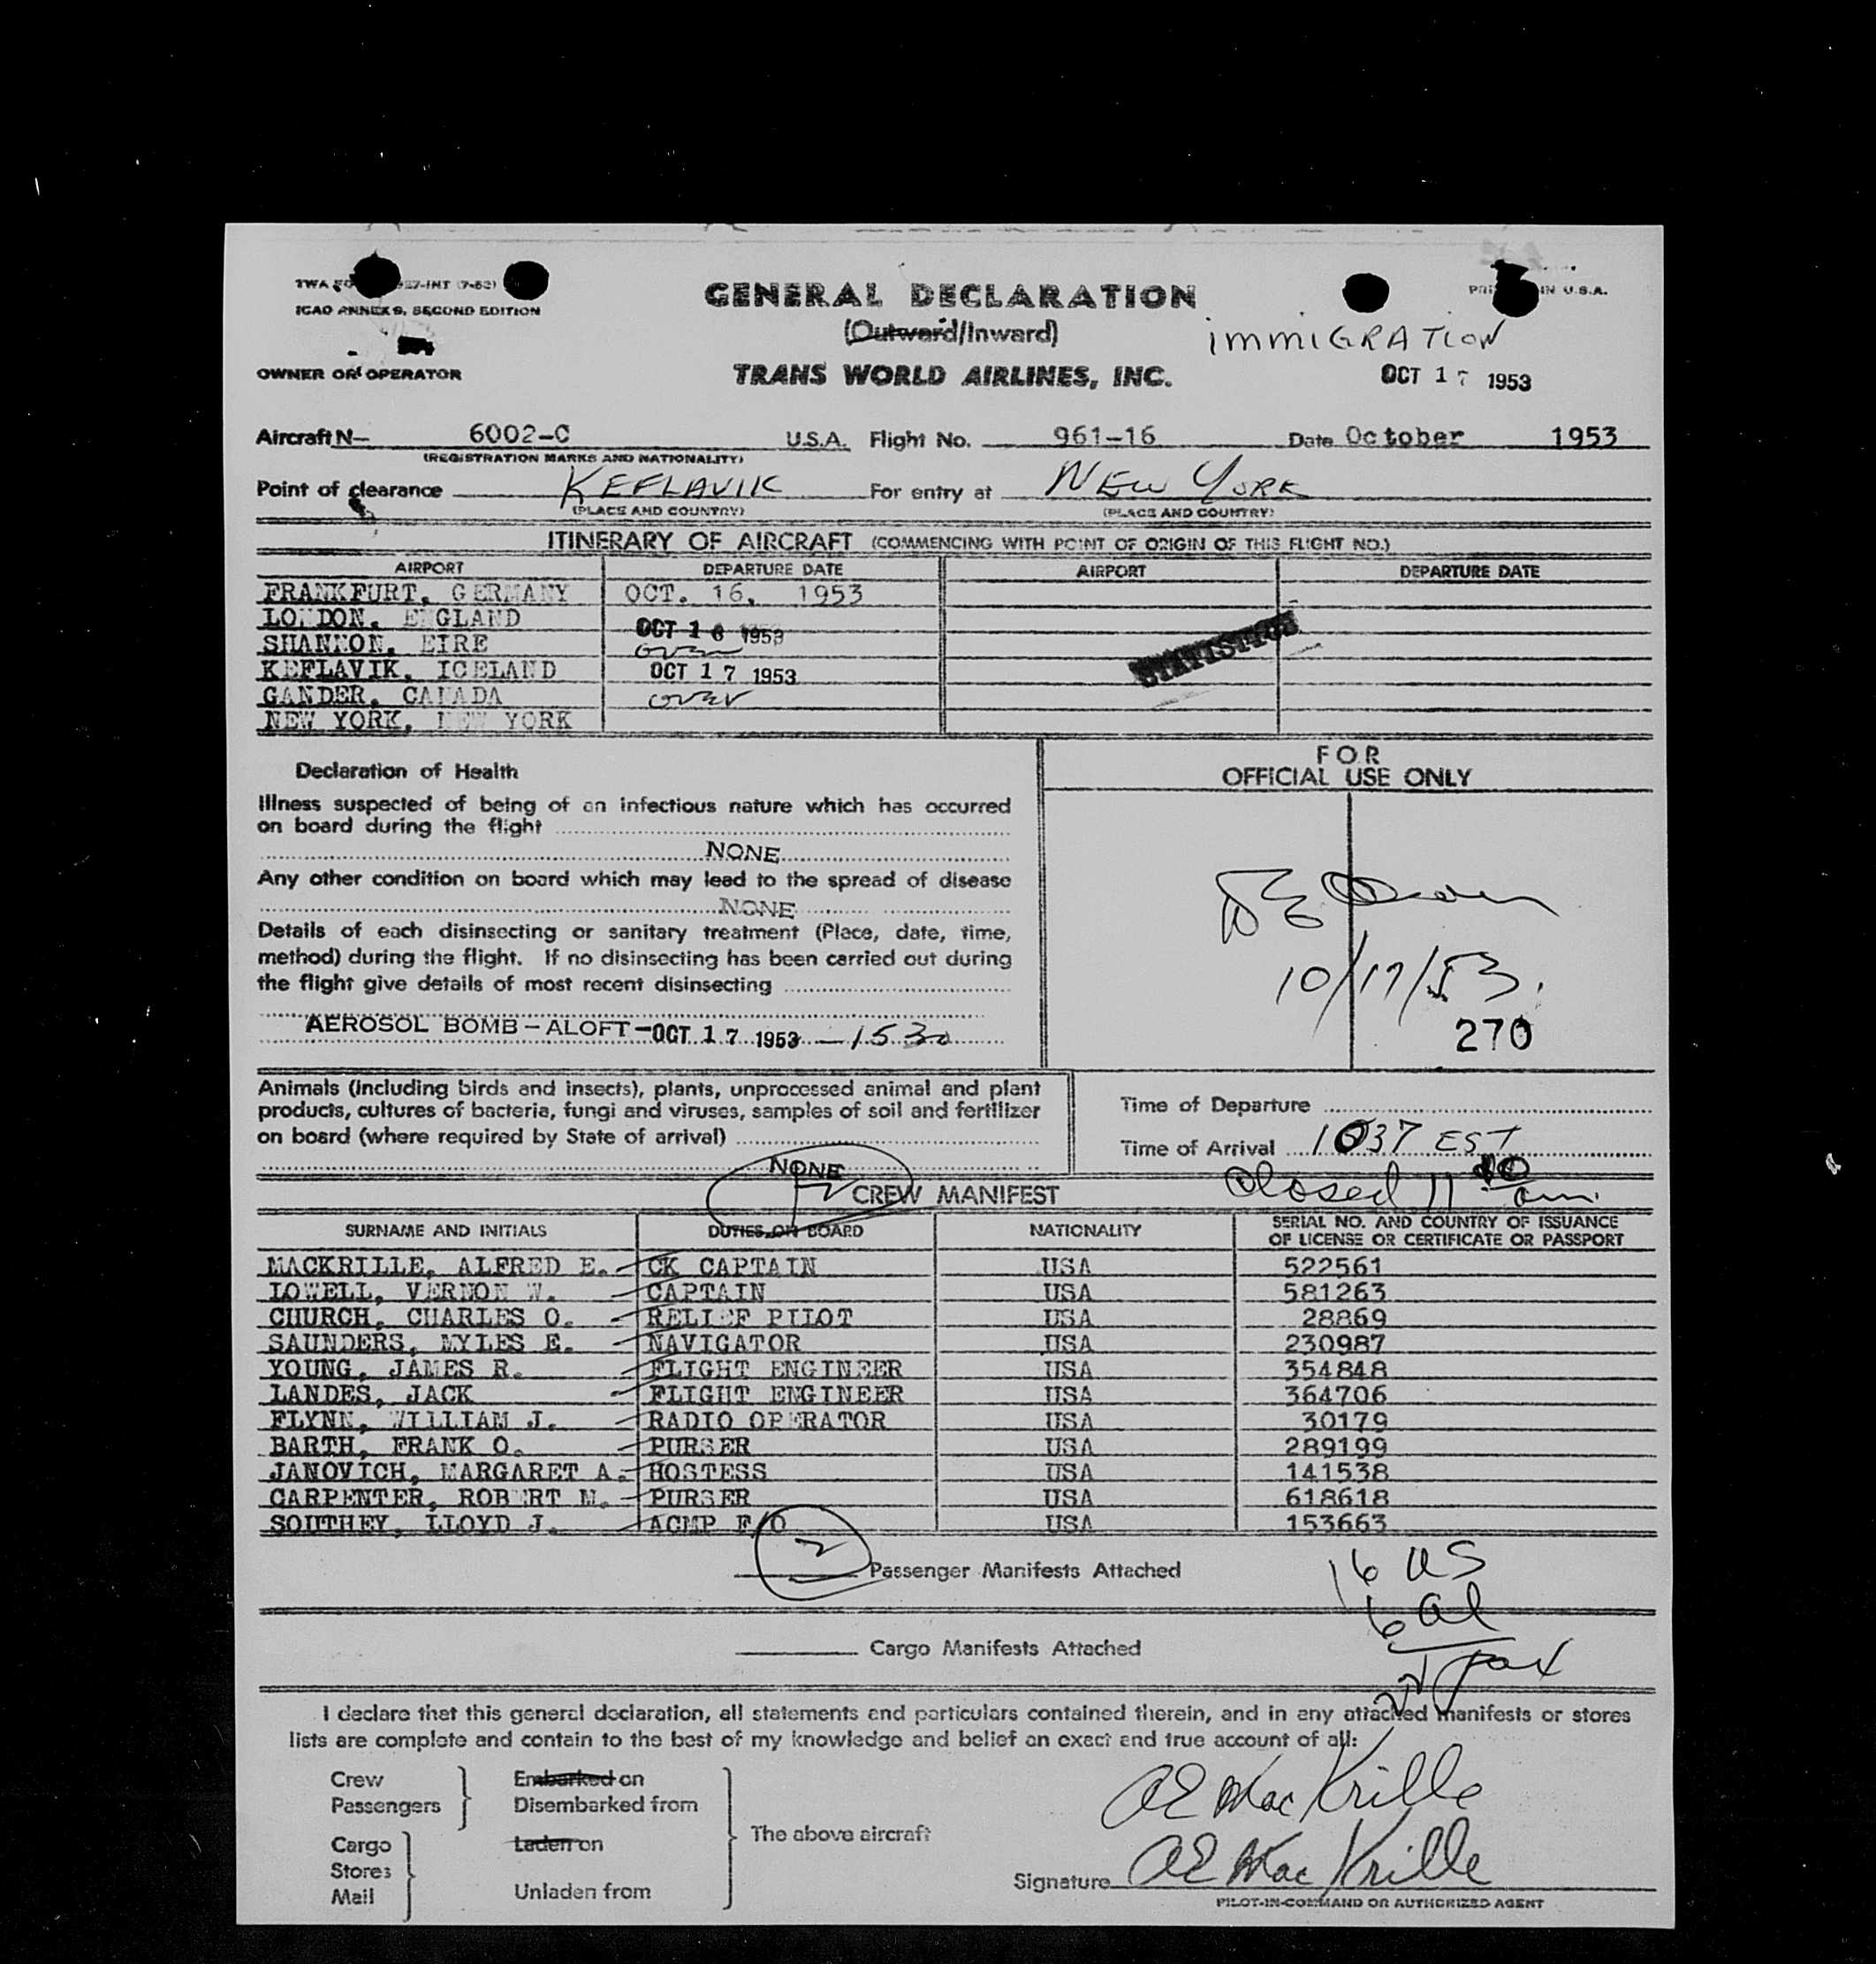 TWA 27-INT (7-52)
PRI IN U.S.A.
ICAO ANNEX 9, SECOND EDITION
GENERAL DECLARATION
(Outward/Inward)
IMMIGRATION
OWNER OR OPERATOR
TRANS WORLD AIRLINES, INC.
OCT 17 1953
Aircraft N- 6002-C U.S.A. Flight No. 961-16 Date October 1953
(REGISTRATION MARKS AND NATIONALITY)
Point of clearance KEFLAVIK For entry at NEW YORK
(PLACE AND COUNTRY) (PLACE AND COUNTRY)
ITINERARY OF AIRCRAFT (COMMENCING WITH POINT OF ORIGIN OF THIS FLIGHT NO.)
AIRPORT DEPARTURE DATE AIRPORT DEPARTURE DATE
FRANKFURT, GERMANY OCT. 16, 1953
LONDON, ENGLAND OCT 16 1953
SHANNON, EIRE over
KEFLAVIK, ICELAND OCT 17 1953
GANDER, CANADA over
NEW YORK, NEW YORK
STATISTICS
Declaration of Health
FOR
OFFICIAL USE ONLY
Illness suspected of being of an infectious nature which has occurred
on board during the flight
NONE
Any other condition on board which may lead to the spread of disease
NONE
Details of each disinsecting or sanitary treatment (Place, date, time,
method) during the flight. If no disinsecting has been carried out during
the flight give details of most recent disinsecting
AEROSOL BOMB - ALOFT - OCT 17 1953 - 1530
10/17/53
270
Animals (including birds and insects), plants, unprocessed animal and plant
products, cultures of bacteria, fungi and viruses, samples of soil and fertilizer
on board (where required by State of arrival)
NONE
Time of Departure
Time of Arrival 1037 EST
Closed 11 am
CREW MANIFEST
SURNAME AND INITIALS DUTIES ON BOARD NATIONALITY SERIAL NO. AND COUNTRY OF ISSUANCE
OF LICENSE OR CERTIFICATE OR PASSPORT
MACKRILLE, ALFRED E. CK CAPTAIN USA 522561
LOWELL, VERNON W. CAPTAIN USA 581263
CHURCH, CHARLES O. RELIEF PILOT USA 28869
SAUNDERS, MYLES E. NAVIGATOR USA 230987
YOUNG, JAMES R. FLIGHT ENGINEER USA 354848
LANDES, JACK FLIGHT ENGINEER USA 364706
FLYNN, WILLIAM J. RADIO OPERATOR USA 30179
BARTH, FRANK O. PURSER USA 289199
JANOVICH, MARGARET A. HOSTESS USA 141538
CARPENTER, ROBERT M. PURSER USA 618618
SOUTHEY, LLOYD J. ACMP F/O USA 153663
2 Passenger Manifests Attached
16 US
6 al
22 pax
Cargo Manifests Attached
I declare that this general declaration, all statements and particulars contained therein, and in any attached manifests or stores
lists are complete and contain to the best of my knowledge and belief an exact and true account of all:
Crew Embarked on
Passengers Disembarked from
The above aircraft
Cargo Laden on
Stores
Mail Unladen from
AE MacKrille
Signature AE MacKrille
PILOT-IN-COMMAND OR AUTHORIZED AGENT